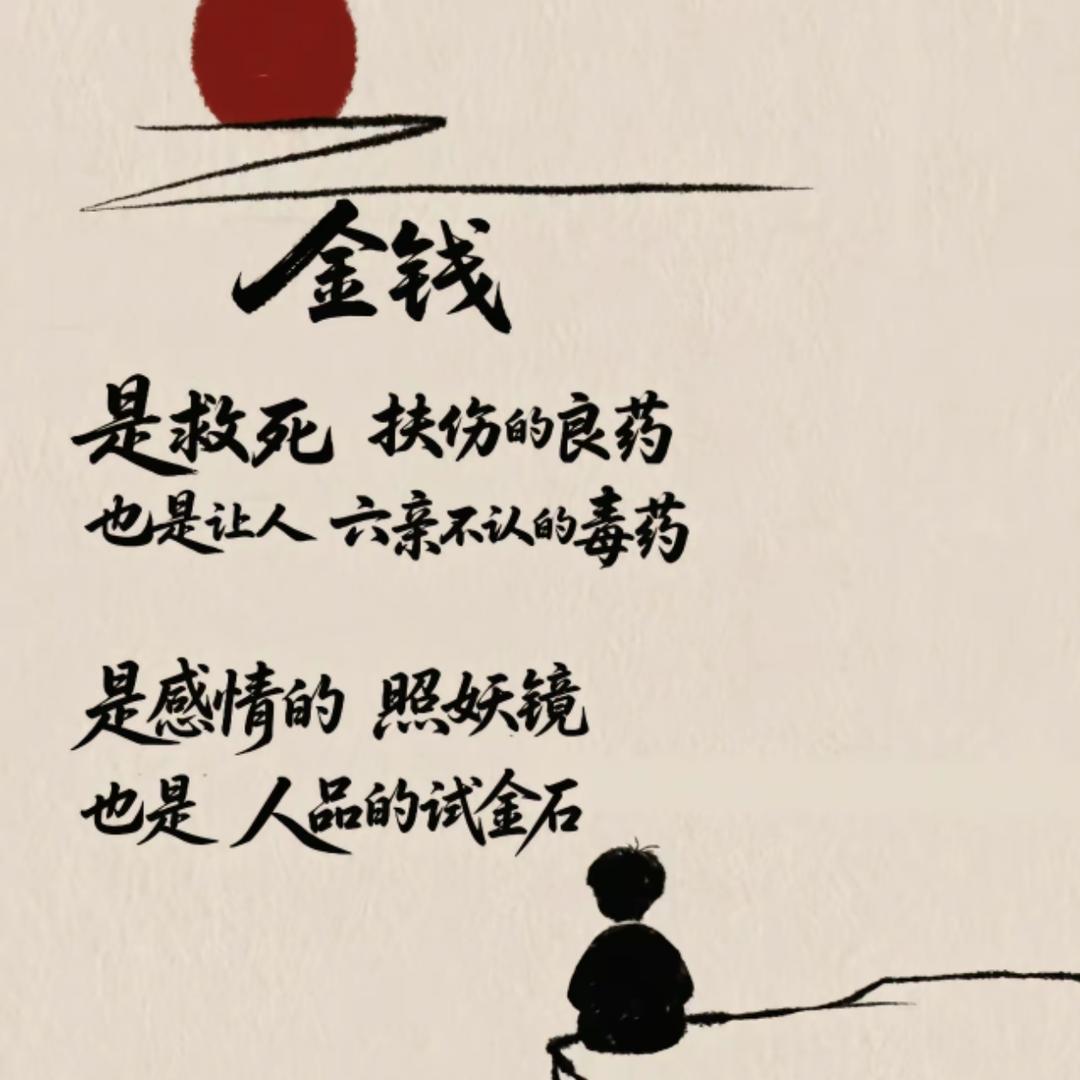 金钱
是救死 扶伤的良药
也是让人 六亲不认的毒药
是感情的 照妖镜
也是 人品的试金石